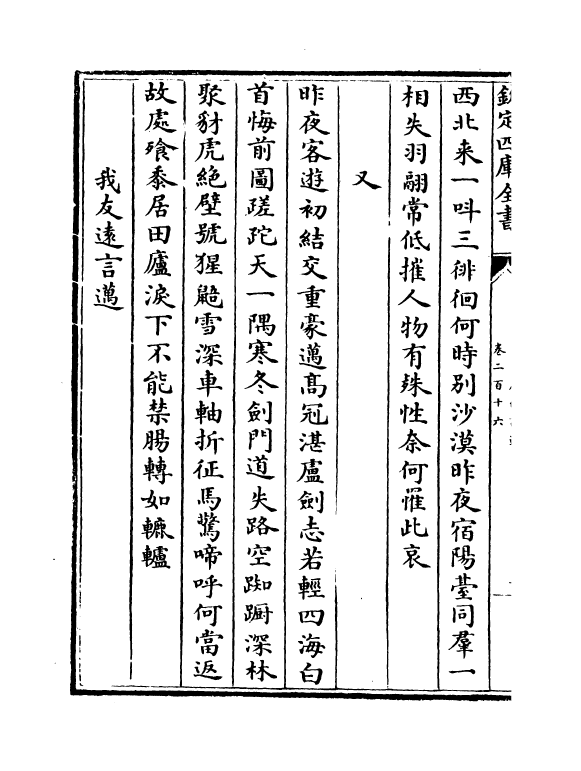 欽定四庫全書
卷二百十六
西北来一呌三徘徊何時別沙漠昨夜宿陽臺同羣一
相失羽翮常低摧人物有殊性奈何罹此哀
又
昨夜客遊初結交重豪邁髙冠湛盧劍志若輕四海白
首悔前圖蹉跎天一隅寒冬劍門道失路空踟蹰深林
聚豺虎絶壁號猩鼯雪深車軸折征馬驚啼呼何當返
故處飱黍居田廬淚下不能禁腸轉如轆轤
我友遠言邁